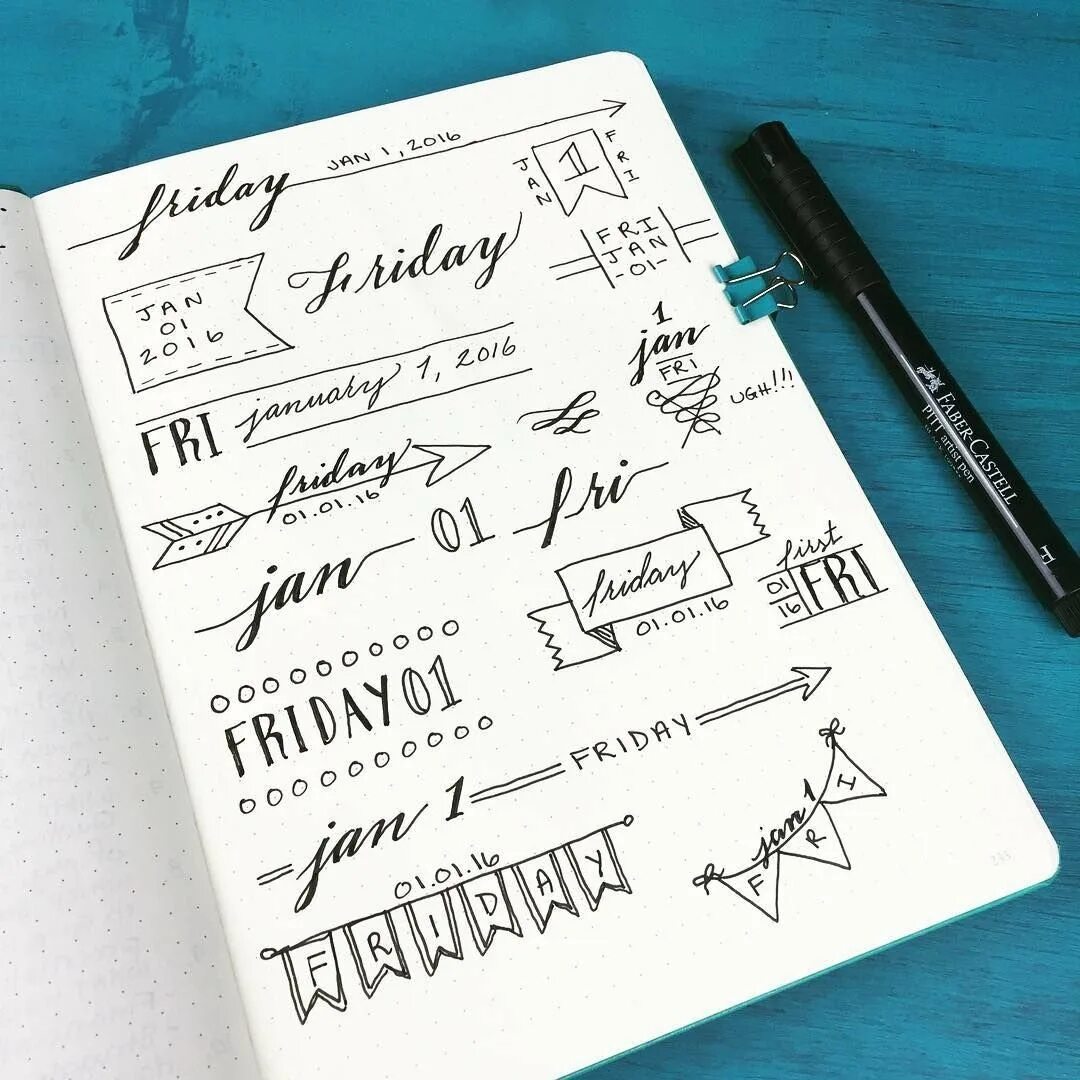 JAN 1, 2016
friday
JAN
1
FRI
Friday
FRI
JAN
-01-
JAN
01
2016
january 1, 2016
FRI
1
jan
FRI
UGH!!!
friday
01.01.16
jan 01 fri
friday
01.01.16
first
01
16
FRI
FRIDAY 01
jan 1 FRIDAY
jan 1
F R I
01.01.16
FRIDAY
FABER-CASTELL
PITT artist pen
245